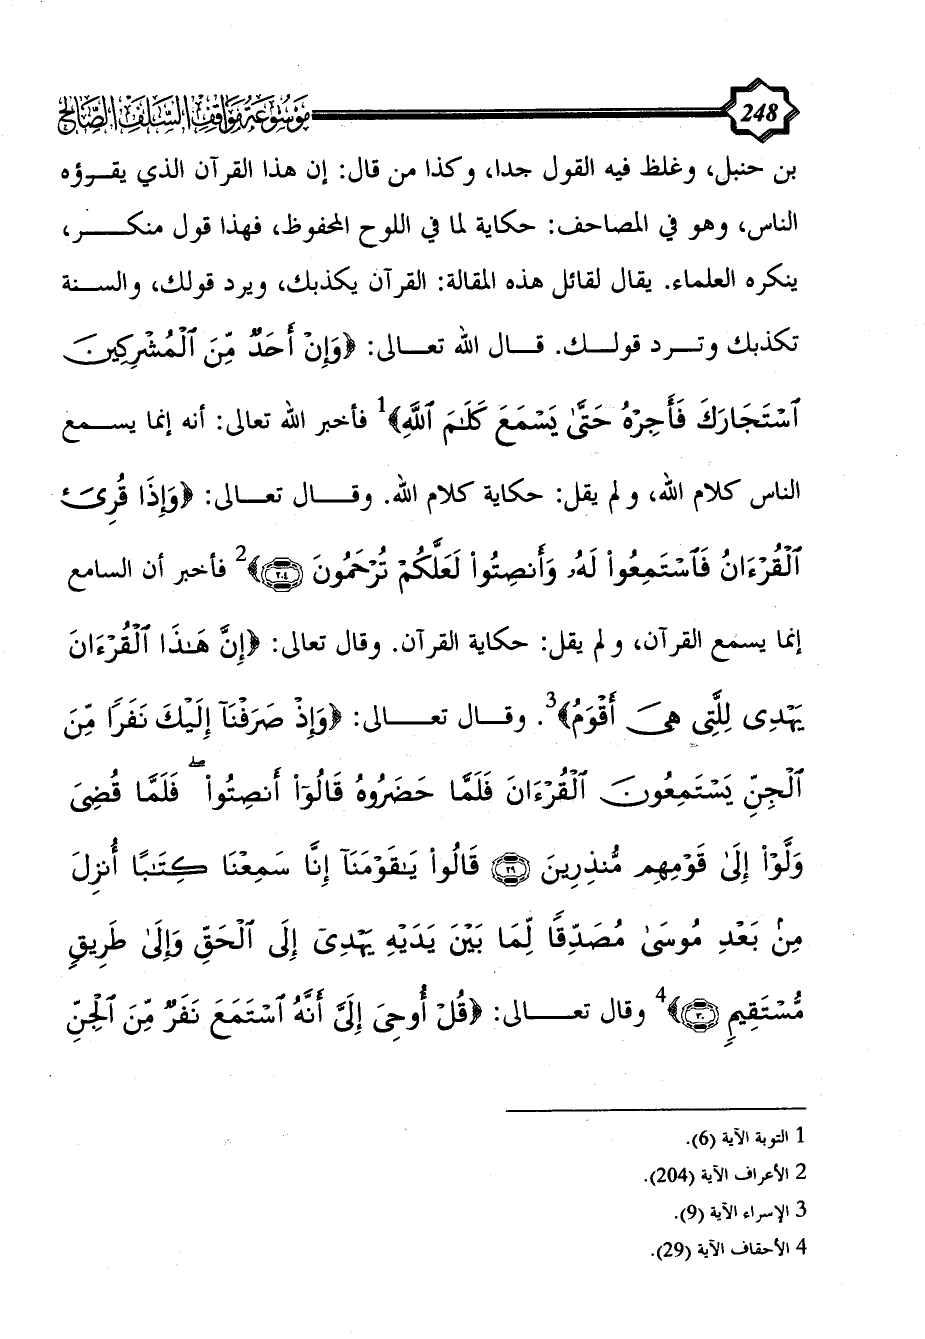 248 موسوعة مواقف السلف الصالح
بن حنبل، وغلظ فيه القول جدا، وكذا من قال: إن هذا القرآن الذي يقـرؤه
الناس، وهو في المصاحف: حكاية لما في اللوح المحفوظ، فهذا قول منكـــر،
ينكره العلماء. يقال لقائل هذه المقالة: القرآن يكذبك، ويرد قولك، والسـنة
تكذبك وتــرد قولــك. قــال الله تعــالى: ﴿وَإِنْ أَحَدٌ مِّنَ ٱلْمُشْرِكِينَ
ٱسْتَجَارَكَ فَأَجِرْهُ حَتَّىٰ يَسْمَعَ كَلَـٰمَ ٱللَّهِ﴾1 فأخبر الله تعالى: أنه إنما يســمع
الناس كلام الله، ولم يقل: حكاية كلام الله. وقـــال تعـــالى: ﴿وَإِذَا قُرِئَ
ٱلْقُرْءَانُ فَٱسْتَمِعُوا۟ لَهُۥ وَأَنصِتُوا۟ لَعَلَّكُمْ تُرْحَمُونَ ٢٠٤﴾2 فأخبر أن السامع
إنما يسمع القرآن، ولم يقل: حكاية القرآن. وقال تعالى: ﴿إِنَّ هَـٰذَا ٱلْقُرْءَانَ
يَهْدِى لِلَّتِى هِىَ أَقْوَمُ﴾3. وقــال تعـــالى: ﴿وَإِذْ صَرَفْنَآ إِلَيْكَ نَفَرًا مِّنَ
ٱلْجِنِّ يَسْتَمِعُونَ ٱلْقُرْءَانَ فَلَمَّا حَضَرُوهُ قَالُوٓا۟ أَنصِتُوا۟ ۖ فَلَمَّا قُضِىَ
وَلَّوْا۟ إِلَىٰ قَوْمِهِم مُّنذِرِينَ ٢٩ قَالُوا۟ يَـٰقَوْمَنَآ إِنَّا سَمِعْنَا كِتَـٰبًا أُنزِلَ
مِنۢ بَعْدِ مُوسَىٰ مُصَدِّقًا لِّمَا بَيْنَ يَدَيْهِ يَهْدِىٓ إِلَى ٱلْحَقِّ وَإِلَىٰ طَرِيقٍ
مُّسْتَقِيمٍ ٣٠﴾4 وقال تعـــالى: ﴿قُلْ أُوحِىَ إِلَىَّ أَنَّهُ ٱسْتَمَعَ نَفَرٌ مِّنَ ٱلْجِنِّ
1 التوبة الآية (6).
2 الأعراف الآية (204).
3 الإسراء الآية (9).
4 الأحقاف الآية (29).